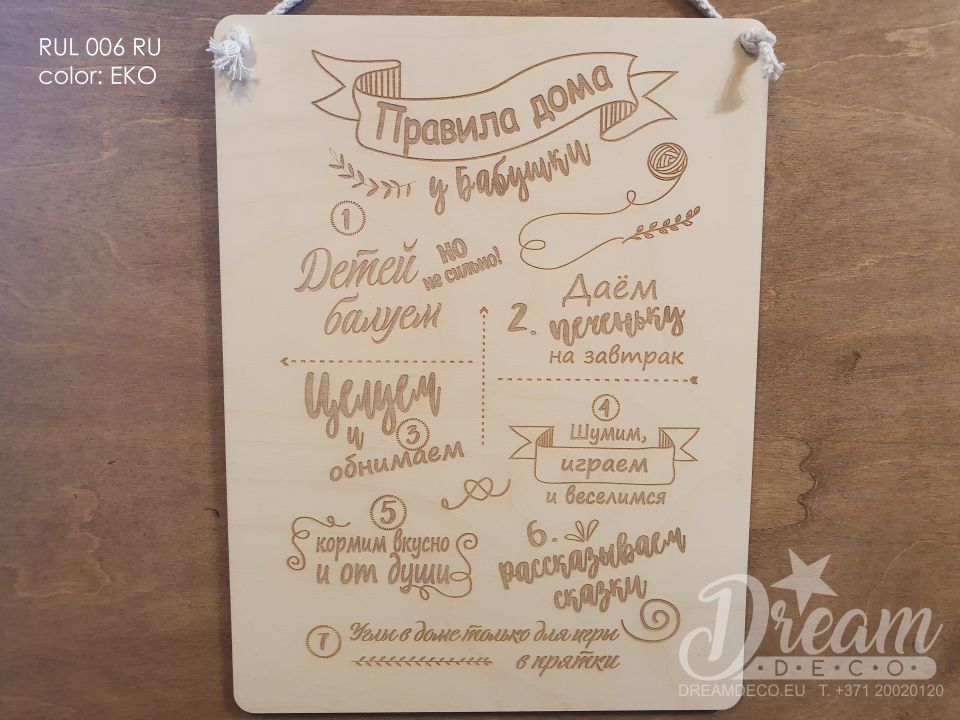 RUL 006 RU
color: EKO
Правила дома
у Бабушки
1
Детей но
не сильно!
балуем
2. Даём
печеньку
на завтрак
Целуем
и 3
обнимаем
4
Шумим,
играем
и веселимся
5
кормим вкусно
и от души
6.
рассказываем
сказки
7 Углы в доме только для игры
в прятки
Dream
DECO
DREAMDECO.EU T. +371 20020120